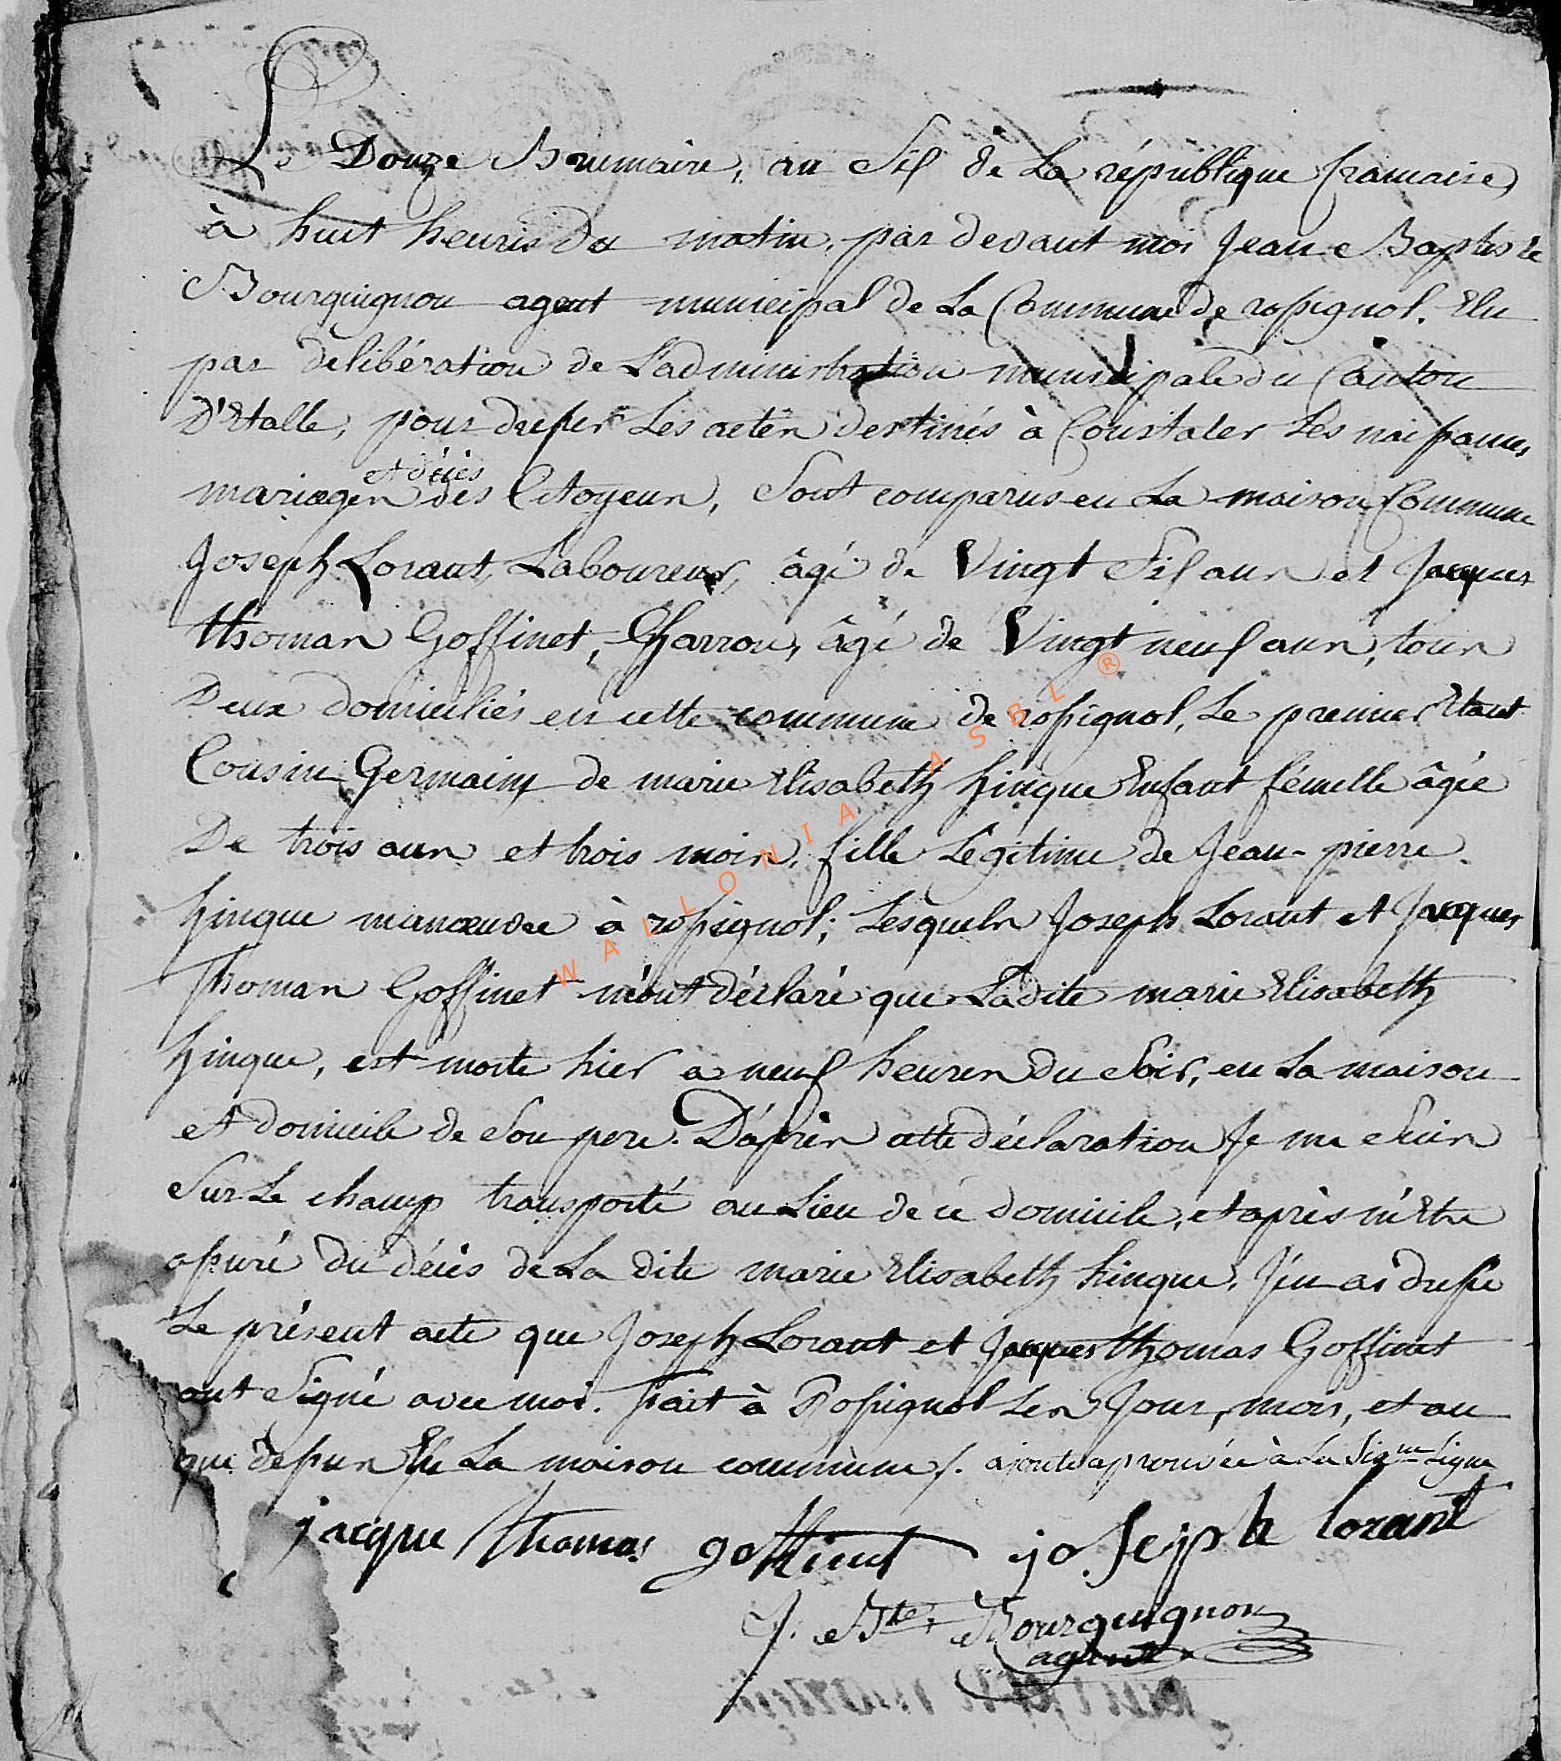 Le Douze Brumaire, an Six de La république francaise,
à huit heures du matin, par devant moi Jean Baptiste
Bourguignon agent municipal de La Commune de rossignol. Elu
par délibération de L'administration municipale du Canton
D'Etalle, pour dresser Les actes destinés à Constater Les naissances,
et décès
mariages des Citoyens, Sont comparus en La maison Commune
Joseph Lorant, Laboureur, âgé de Vingt Six ans et Jacques
thomas Goffinet, Charron, âgé de Vingt neuf ans, tous
Deux domiciliés en cette commune de rossignol, Le premier Etant
Cousin Germain de marie Elisabeth hinque Enfant fémelle âgée
De trois ans et trois mois, fille Légitime de Jean-pierre
hinque manoeuvre à rossignol; Lesquels Joseph Lorant et Jacques
Thomas Goffinet m'ont déclaré que Ladite marie Elisabeth
hinque, est morte hier a neuf heures du Soir, en La maison
et domicile de Son pere. D'après cette déclaration Je me Suis
Sur Le champ transporté au Lieu de ce domicile, et après m'Etre
assuré du décès de La dite marie Elisabeth hinque, J'en ai dressé
Le présent acte que Joseph Lorant et Jacques thomas Goffinet
ont Signé avec moi. Fait à Rossignol Les Jour, mois, et an
que dessus En La maison commune /. ajoute aprouvée à La Sixme Ligne
jacque thomas goffinet joseph lorant
J. Bte Bourguignon
agent
WALLONIA ASBL ®